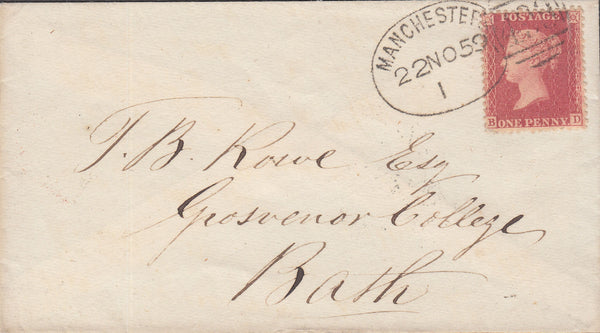 MANCHESTER
22 NO 59
1
POSTAGE
B D
ONE PENNY
T. B. Rowe Esq
Grosvenor College
Bath